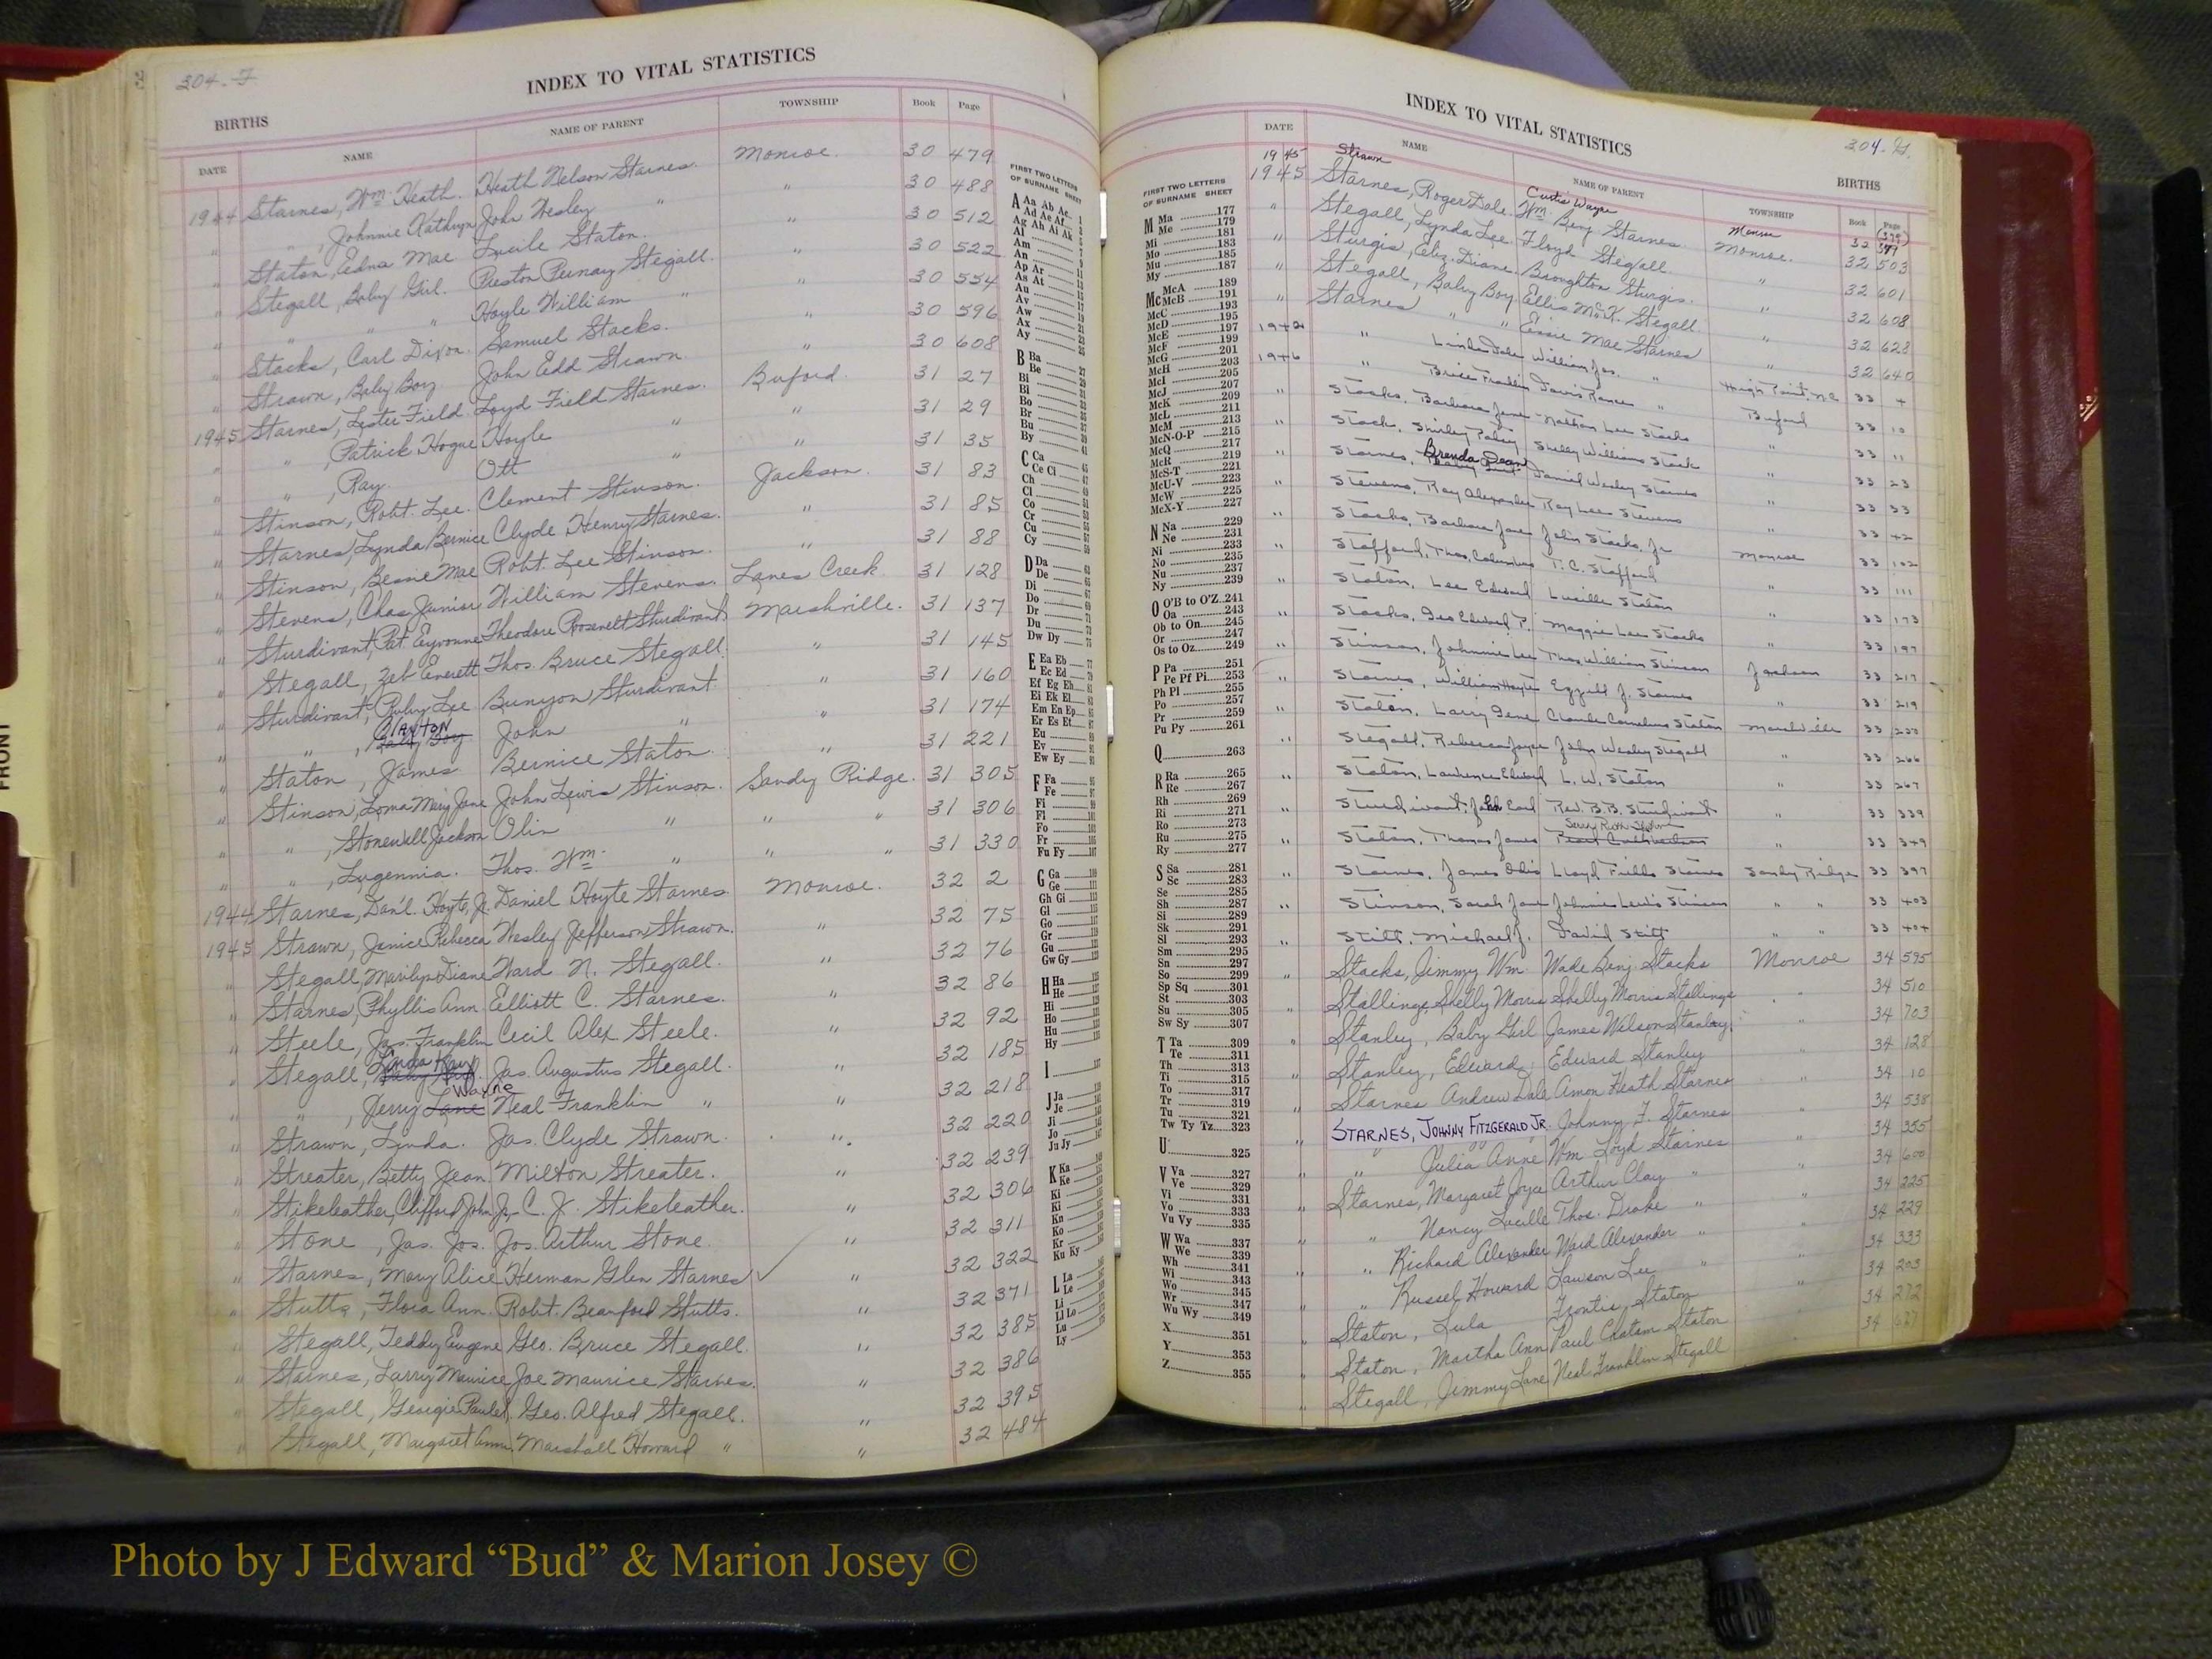 304-F
INDEX TO VITAL STATISTICS
BIRTHS
DATE NAME NAME OF PARENT TOWNSHIP Book Page
1944 Starnes, Wm. Heath. Heath Nelson Starnes. Monroe. 30 479
" " , Johnnie Kathryn John Wesley " " 30 488
" Staton, Edna Mae Lucile Staton. " 30 512
" Stegall, Baby Girl. Preston Stegall. " 30 522
" " " Hoyle William " " 30 554
" Stacks, Carl Dixon. Samuel Stacks. " 30 596
" Strawn, Baby Boy John Edd Strawn. " 30 608
1945 Starnes, Lester Field. Loyd Field Starnes. Buford. 31 27
" " , Patrick Hogue Hoyle " " 31 29
" " , Ray. Ott " " 31 35
" Stinson, Robt. Lee. Clement Stinson. Jackson. 31 83
" Starnes, Lynda Bernice Clyde Henry Starnes. " 31 85
" Stinson, Bessie Mae Robt. Lee Stinson. " 31 88
" Stevens, Chas. Junior William Stevens. Lanes Creek. 31 128
" Sturdivant, Pat. Eyvonne Theodore Roosevelt Sturdivant. Marshville. 31 137
" Stegall, Zeb Everett Thos. Bruce Stegall. " 31 145
" Sturdivant, Ruby Lee Bunyon Sturdivant. " 31 160
" " , Clayton Baby Boy John " " 31 174
" Staton, James Bernice Staton. " 31 221
" Stinson, Loma Mary Jane John Lewis Stinson. Sandy Ridge. 31 305
" " , Stonewell Jackson Olin " " " 31 306
" " , Lugennia. Thos. Wm. " " " 31 330
1944 Starnes, Dan'l. Hoyte, Jr. Daniel Hoyte Starnes. Monroe. 32 2
1945 Strawn, Janice Rebecca Wesley Jefferson Strawn. " 32 75
" Stegall, Marilyn Diane Ward N. Stegall. " 32 76
" Starnes, Phyllis Ann Elliott C. Starnes. " 32 86
" Steele, Jas. Franklin Cecil Alex Steele. " 32 92
" Stegall, Linda Kay Jas. Augustus Stegall. " 32 185
" " , Jerry Lane Wayne Neal Franklin " " 32 218
" Strawn, Lynda. Jas. Clyde Strawn. " 32 220
" Streater, Betty Jean. Milton Streater. " 32 239
" Stikeleather, Clifford John, Jr. C. J. Stikeleather. " 32 306
" Stone, Jas. Jos. Jos. Arthur Stone. " 32 311
" Starnes, Mary Alice Herman Glen Starnes " 32 322
" Stutts, Flora Ann. Robt. Beanford Stutts. " 32 371
" Stegall, Teddy Eugene Geo. Bruce Stegall. " 32 385
" Starnes, Larry Maurice Joe Maurice Starnes. " 32 386
" Stegall, Georgie Geo. Alfred Stegall. " 32 395
" Stegall, Margaret Ann. Marshall Howard " " 32 484
FIRST TWO LETTERS
OF SURNAME SHEET
A Aa Ab Ac
Ad Ae Af
Ag Ah Ai Ak
Al
Am
An
Ap Ar
As At
Au
Av
Aw
Ax
Ay
B Ba
Be
Bi
Bl
Bo
Br
Bu
By
C Ca
Ce Ci
Ch
Cl
Co
Cr
Cu
Cy
D Da
De
Di
Do
Dr
Du
Dw Dy
E Ea Eb
Ec Ed
Ef Eg Eh
Ei Ek El
Em En Ep
Er Es Et
Eu
Ev
Ew Ey
F Fa
Fe
Fi
Fl
Fo
Fr
Fu Fy
G Ga
Ge
Gh Gi
Gl
Go
Gr
Gu
Gw Gy
H Ha
He
Hi
Ho
Hu
Hy
I
J Ja
Je
Ji
Jo
Ju Jy
K Ka
Ke
Ki
Kn
Ko
Kr
Ku Ky
L La
Le
Li
Ll Lo
Lu
Ly
INDEX TO VITAL STATISTICS
304-G.
BIRTHS
DATE NAME NAME OF PARENT TOWNSHIP Book Page
FIRST TWO LETTERS
OF SURNAME SHEET
M Ma 177
Me 179
Mi 181
Mo 183
Mu 185
My 187
Mc McA 189
McB 191
McC 193
McD 195
McE 197
McF 199
McG 201
McH 203
McI 205
McJ 207
McK 209
McL 211
McM 213
McN-O-P 215
McQ 217
McR 219
McS-T 221
McU-V 223
McW 225
McX-Y 227
N Na 229
Ne 231
Ni 233
No 235
Nu 237
Ny 239
O O'B to O'Z 241
Oa 243
Ob to On 245
Or 247
Os to Oz 249
P Pa 251
Pe Pf Pi 253
Ph Pl 255
Po 257
Pr 259
Pu Py 261
Q 263
R Ra 265
Re 267
Rh 269
Ri 271
Ro 273
Ru 275
Ry 277
S Sa 281
Sc 283
Se 285
Sh 287
Si 289
Sk 291
Sl 293
Sm 295
Sn 297
So 299
Sp Sq 301
St 303
Su 305
Sw Sy 307
T Ta 309
Te 311
Th 313
Ti 315
To 317
Tr 319
Tu 321
Tw Ty Tz 323
U 325
V Va 327
Ve 329
Vi 331
Vo 333
Vu Vy 335
W Wa 337
We 339
Wh 341
Wi 343
Wo 345
Wr 347
Wu Wy 349
X 351
Y 353
Z 355
1945 Strawn Curtis Wayne Monroe (379)
1945 Starnes, Roger Dale. Wm. Benj. Starnes. Monroe. 32 379
" Stegall, Lynda Lee Floyd Stegall. " 32 503
" Sturgis, Eliz. Diane. Broughton Sturgis. 32 601
" Stegall, Baby Boy Ellis McK. Stegall. " 32 608
" Starnes " " Essie Mae Starnes " 32 628
1942 " Linda Dale William Jas. " " 32 640
1946 " Brice Franklin Davis Rance " High Point, N.C. 33 4
" Stacks, Barbara Jane Nathan Lee Stacks Buford 33 10
" Stack, Shirley Patsy Shelly Williams Stack " 33 11
" Starnes, Brenda Dean Daniel Wesley Starnes " 33 23
" Stevens, Ray Alexander Ray Lee Stevens " 33 33
" Stacks, Barbara Jane John Stacks, Jr " 33 42
" Stafford, Thos. Columbus T. C. Stafford Monroe 33 102
" Staton, Lee Edward Lucille Staton " 33 111
" Stacks, Geo Edward P. Maggie Lee Stacks " 33 173
" Stinson, Johnnie Lee Thos William Stinson " 33 197
" Starnes, William Hoyte Ezzell J. Starnes Jackson 33 217
" Staton, Larry Gene Claude Cornelius Staton Marshville 33 219
" Stegall, Rebecca Joyce John Wesley Stegall " 33 266
" Staton, Lawrence Edward L. W. Staton " 33 267
" Sturdivant, John Earl Rev. B.B. Sturdivant " 33 339
" Staton, Thomas James " 33 349
" Starnes, James Odis Lloyd Fields Starnes Sandy Ridge 33 397
" Stinson, Sarah Jane Johnnie Lewis Stinson " " 33 403
" Stitt, Michael J. David Stitt " " 33 404
" Stacks, Jimmy Wm. Wade Benj. Stacks Monroe 34 595
" Stallings, Shelly Morris Shelly Morris Stallings " 34 510
" Stanley, Baby Girl James Wilson Stanley " 34 703
" Stanley, Edward Edward Stanley 34 128
" Starnes Andrew Dale Amon Heath Starnes " 34 10
" STARNES, JOHNNY FITZGERALD JR. Johnny F. Starnes 34 538
" " Julia Anne Wm Loyd Starnes " 34 355
" Starnes, Margaret Joyce Arthur Clay " " 34 600
" " Nancy Lucille Thos. Drake " " 34 225
" " Richard Alexander Ward Alexander " 34 229
" " Russel Howard Lawson Lee " " 34 333
" Staton, Lula Frontis Staton " 34 203
" Staton, Martha Ann Paul Chatam Staton 34 272
" Stegall, Jimmy Lane Neal Franklin Stegall 34
FRONT
Photo by J Edward “Bud” & Marion Josey ©